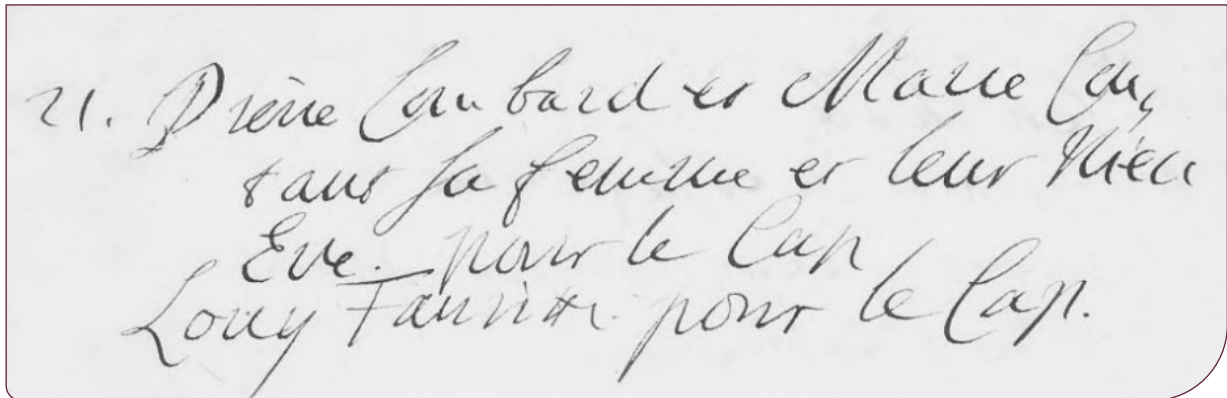 21. Pierre Lombard et Marie Cou,
tant sa femme et leur Niece
Eve. pour le Cap
Louy Fauritte. pour le Cap.